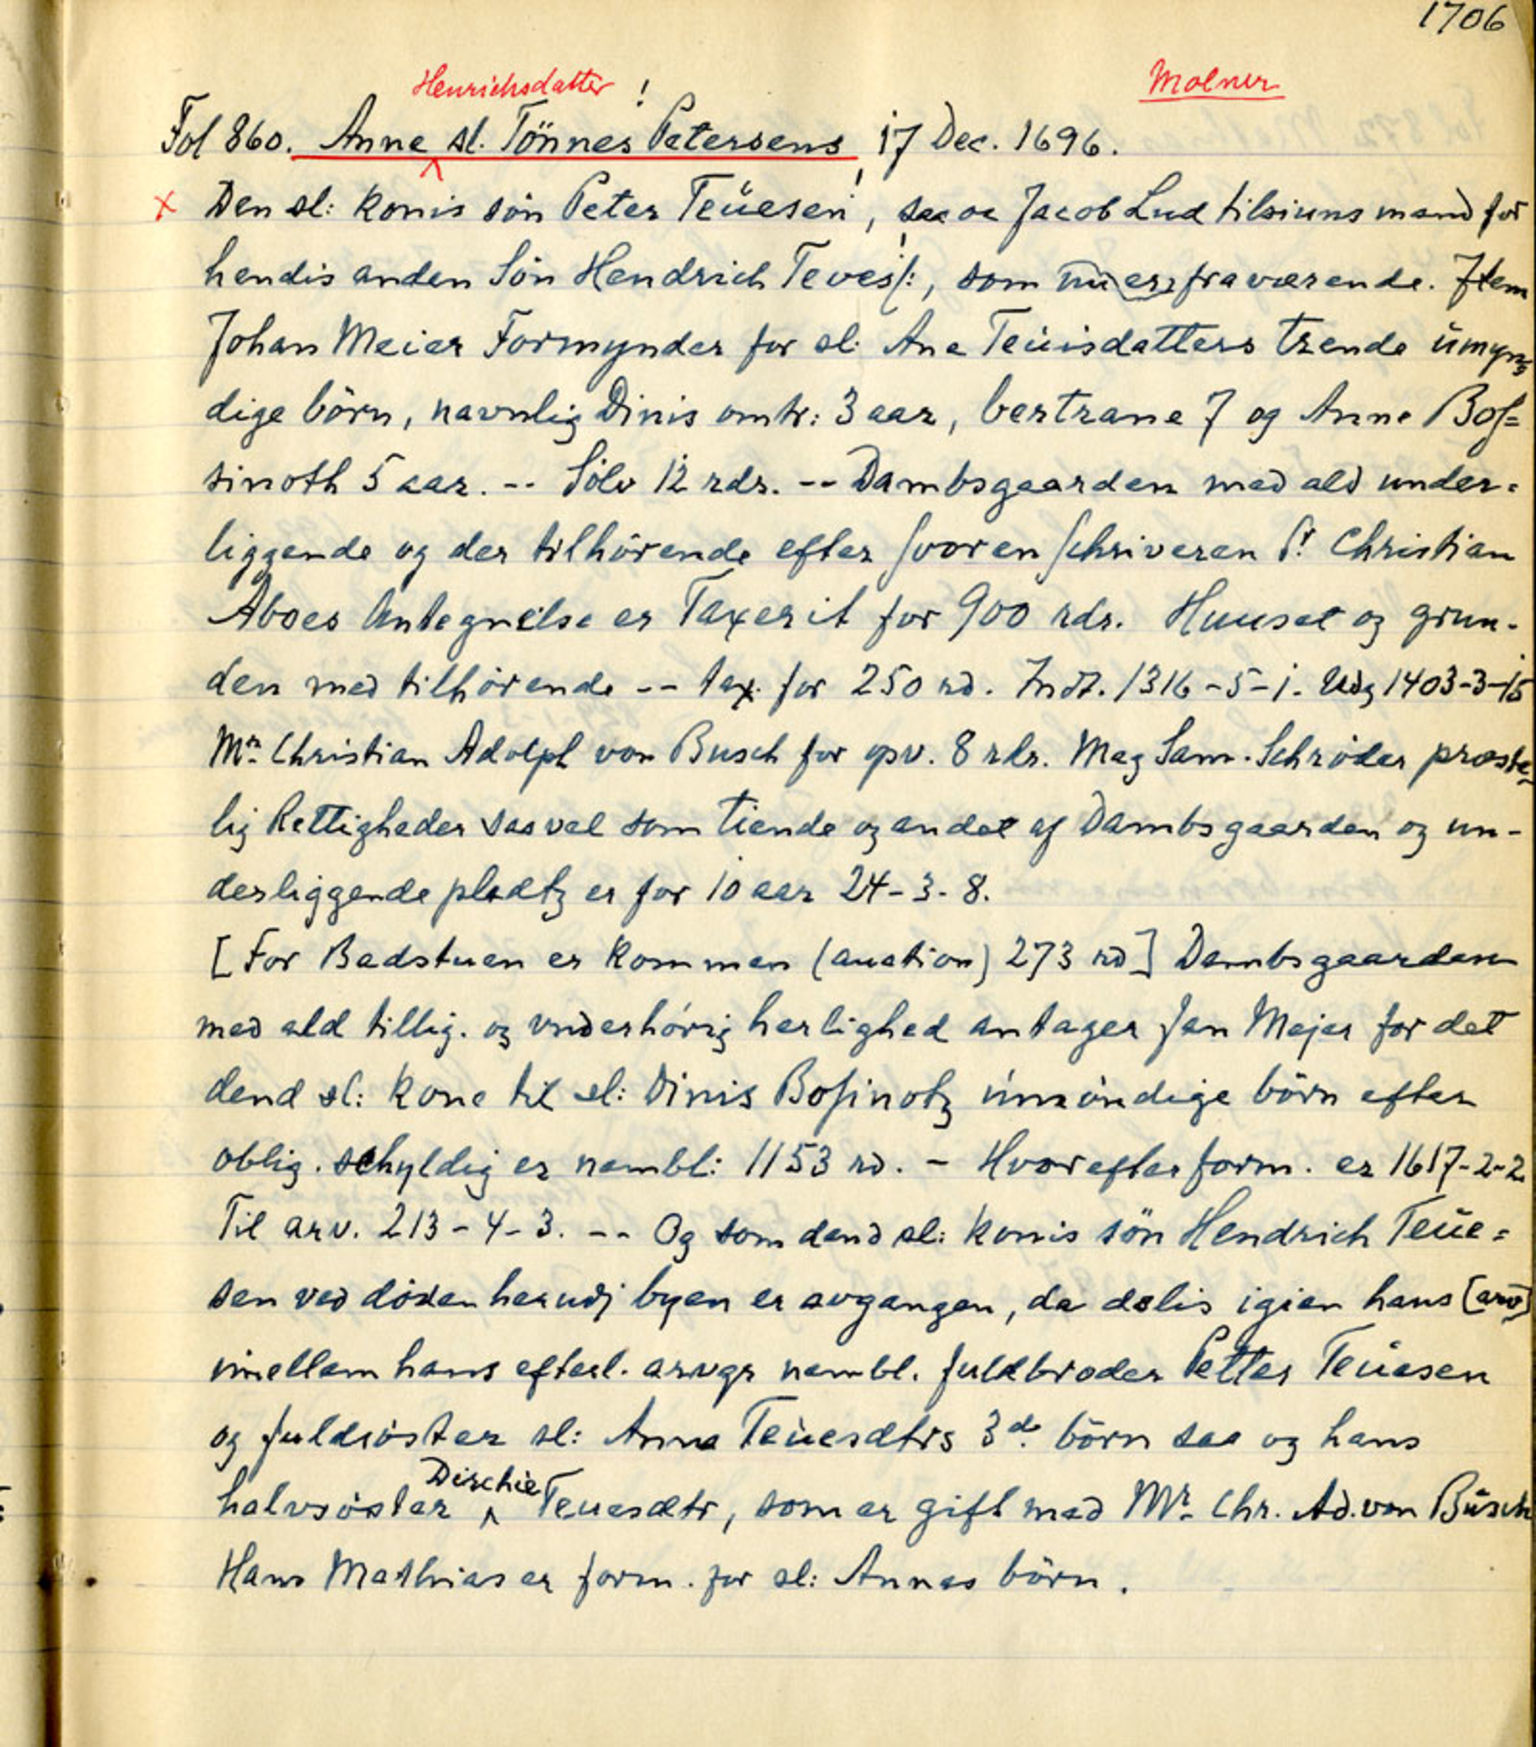 1706
Henrichsdatter !
Molner
Fol 860. Anne sl. Tönnes Petersens 17 Dec. 1696.
x Den sl: konis sön Peter Teüesen!, saa oc Jacob Lud tilsiuns mand for
hendis anden Sön Hendrich Teves!:, som nu er fraværende. Item
Johan Meier Formynder for sl: Ane Teüisdatters trende ümyn=
dige börn, navnlig Dinis omtr: 3 aar, bertrane 7 og Anne Bos=
sinoth 5 aar. -- Sölv 12 rdr. -- Dambsgaarden med ald under=
liggende og der tilhörende efter Sorenschriveren Sr. Christian
Aboes Antegnelse er Taxerit for 900 rdr. Huuset og grun-
den med tilhörende -- tax. for 250 rd. Indt. 1316-5-1. Udg 1403-3-15
Mr. Christian Adolph von Busch for opv. 8 rdr. Mag Sam. Schröder præste=
lig Rettigheder saavel som tiende og andet af Dambsgaarden og un-
derliggende pladtz er for 10 aar 24-3-8.
[For Badstuen er kommen (auction) 273 rd] Dambsgaarden
med ald tillig. og vnderhörig herlighed antager Jan Mejer for det
dend sl: kone til sl: Dinis Bosinotz ümöndige börn efter
oblig. schyldig er nambl: 1153 rd. - Hvorefter form. er 1617-2-2
Til arv. 213-4-3. -- Og som dend sl: konis sön Hendrich Teüe=
sen ved döden herudj byen er avgangen, da delis igien hans [arv]
imellem hans efterl. arvgr nambl. fuldbroder Petter Teüesen
og fuldsöster sl: Anna Teüesdtrs 3de börn saa og hans
halvsöster Dirchie Teuesdtr, som er gift med Mr. Chr. Ad. von Büsch
Hans Mathias er form. for sl: Annas börn.